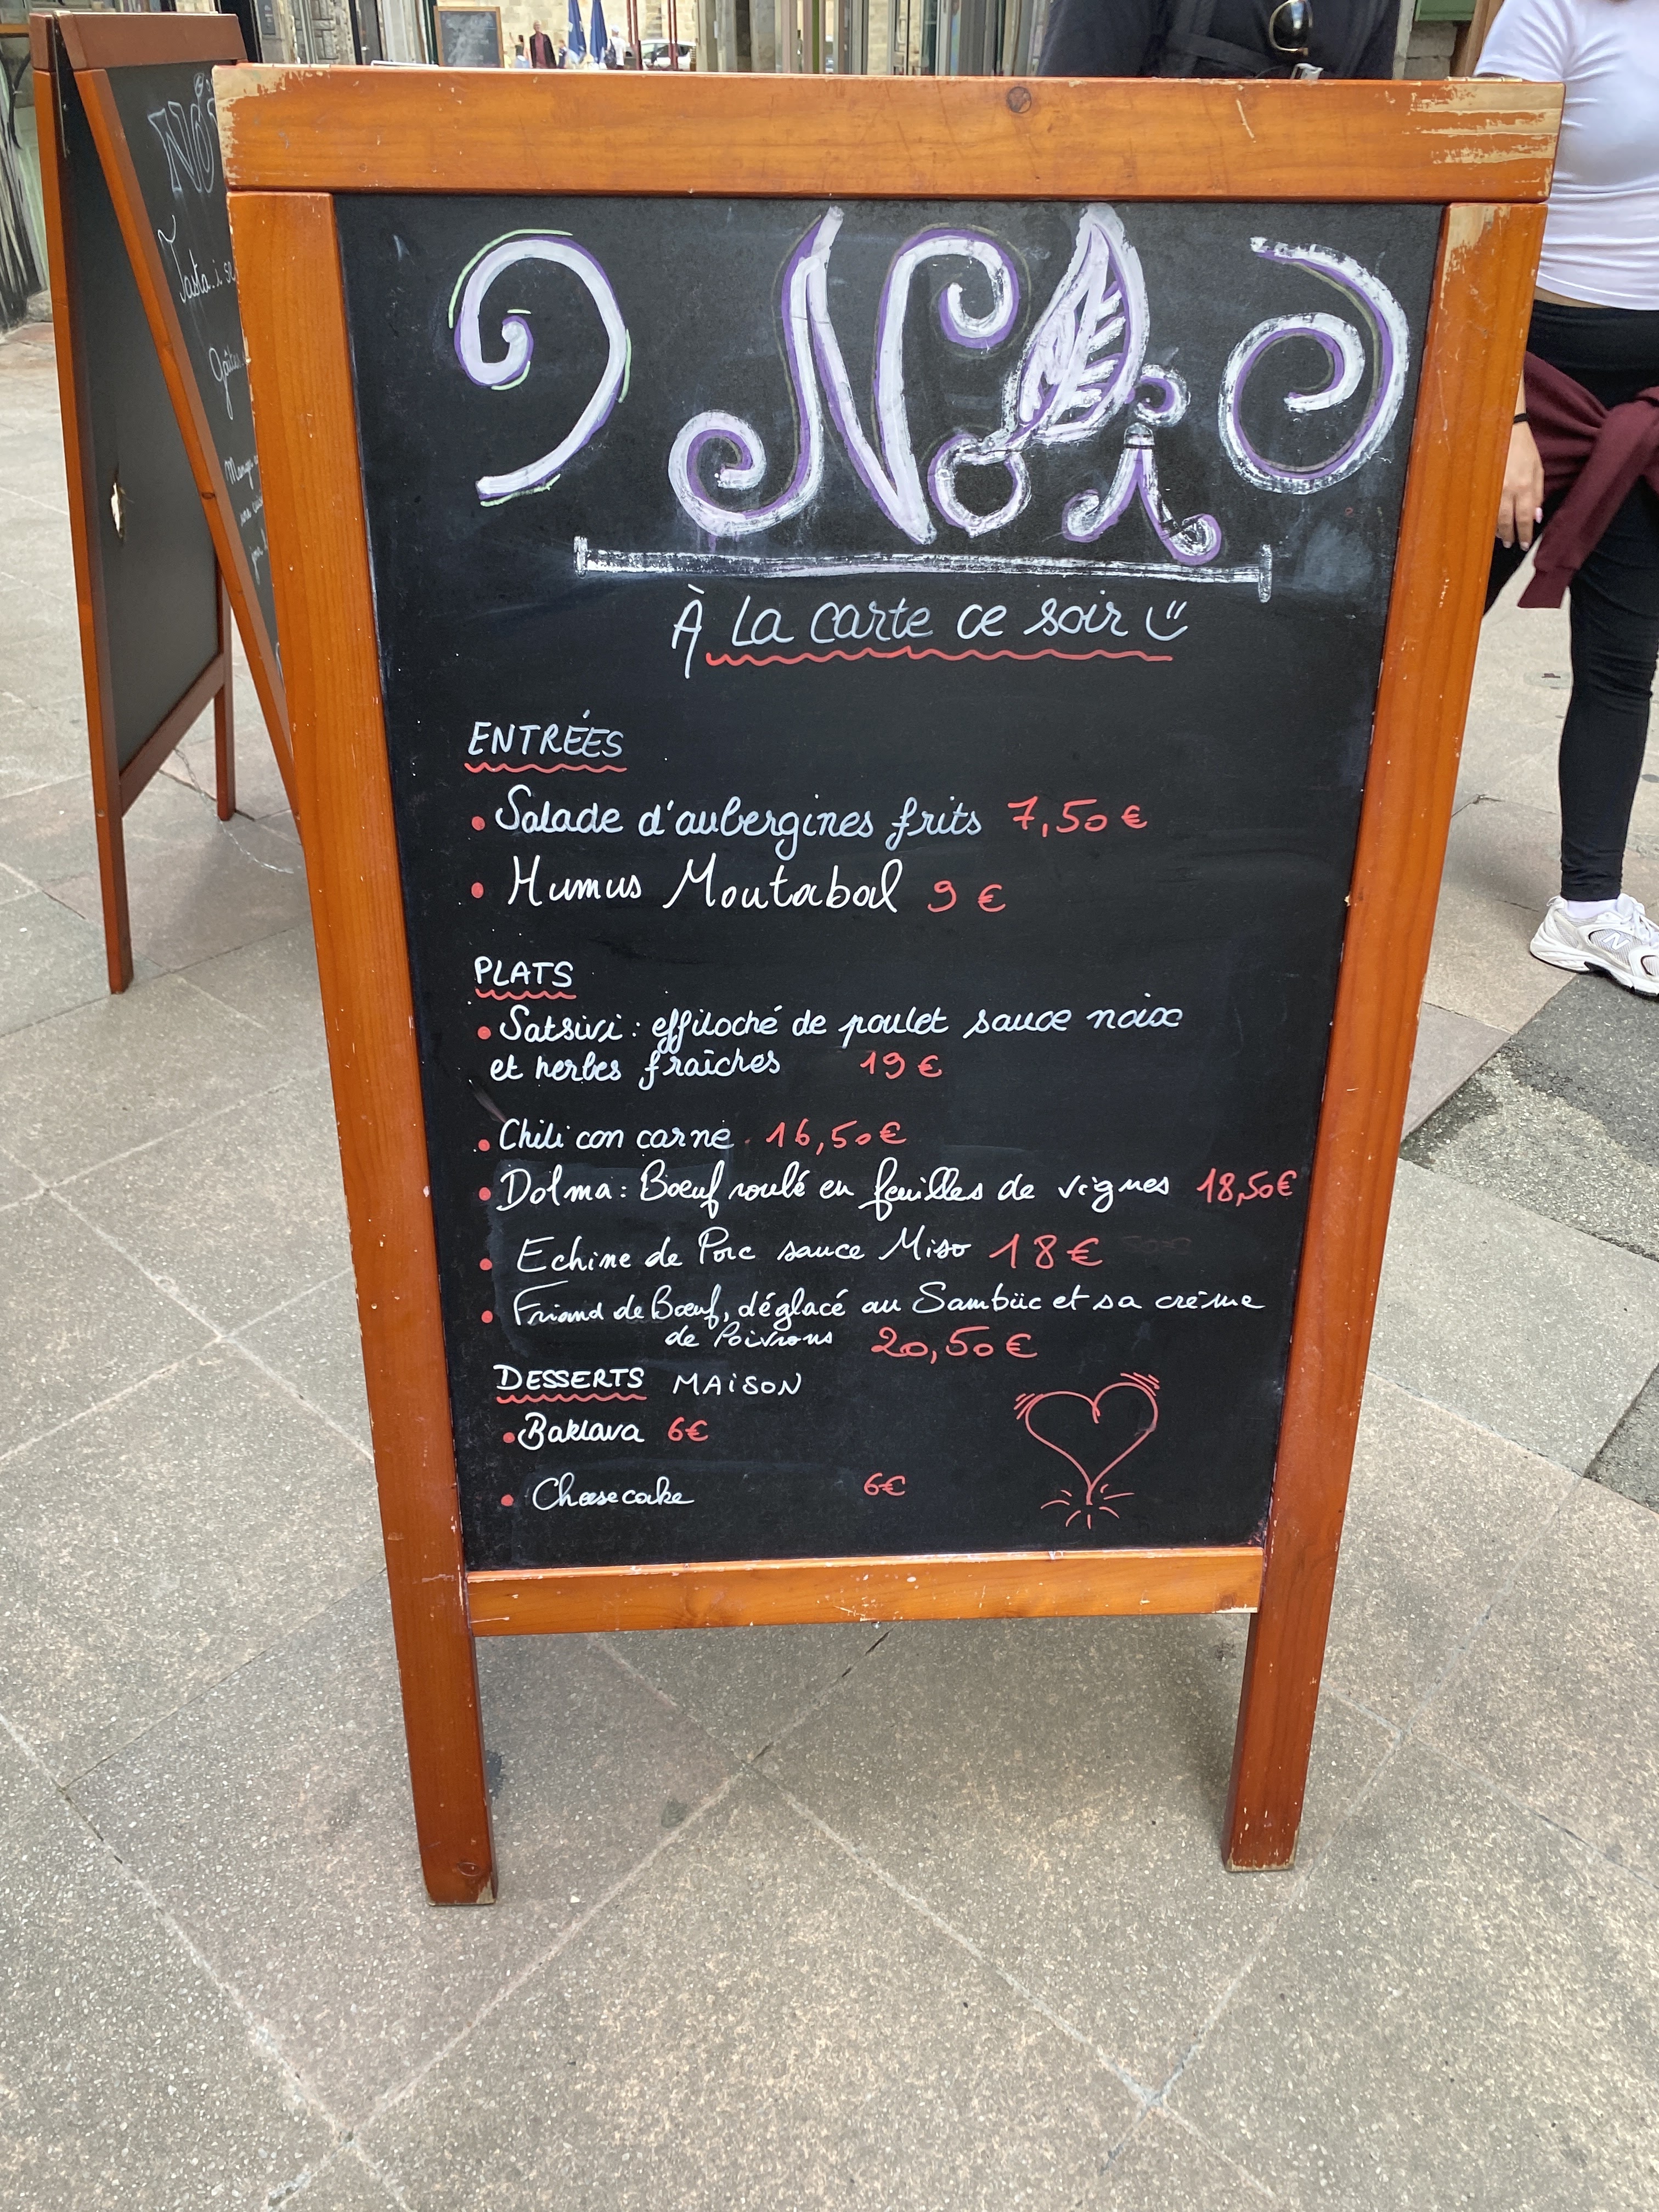 Nói
À La carte ce soir
ENTRÉES
• Salade d'aubergines frits 7,50€
• Humus Moutabal 9€
PLATS
• Satsivi: effiloché de poulet sauce noix
et herbes fraîches 19€
• Chili con carne 16,50€
• Dolma: Bœuf roulé en feuilles de vignes 18,50€
• Echine de Porc sauce Miso 18€
• Friand de Bœuf, déglacé au Sambüc et sa crème
de Poivrons 20,50€
DESSERTS MAiSON
• Baklava 6€
• Cheesecake 6€